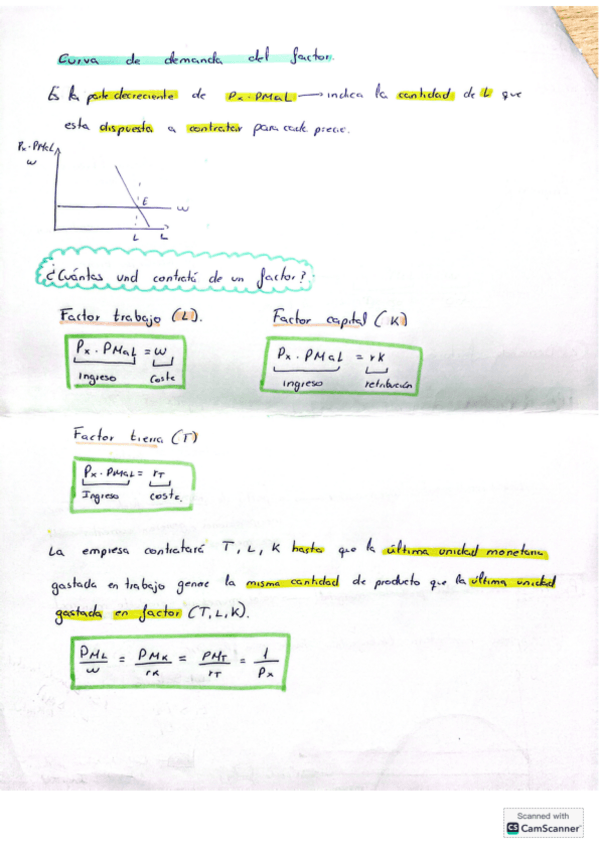 Curva de demanda del factor.
Es la parte decreciente de Px · PMaL → indica la cantidad de L que
esta dispuesta a contratar para cada precio.
Px · PMaL
w
E
w
L
L
¿Cuántas und contratá de un factor?
Factor trabajo (L).
Px · PMaL = w
Ingreso coste
Factor capital (K)
Px · PMaL = rK
ingreso retribución
Factor tierra (T)
Px · PMaL = rT
Ingreso coste.
La empresa contratará T, L, K hasta que la última unidad monetaria
gastada en trabajo genere la misma cantidad de producto que la última unidad
gastada en factor (T, L, K).
PML/w = PMK/rK = PMT/rT = 1/Px
Scanned with
CS CamScanner